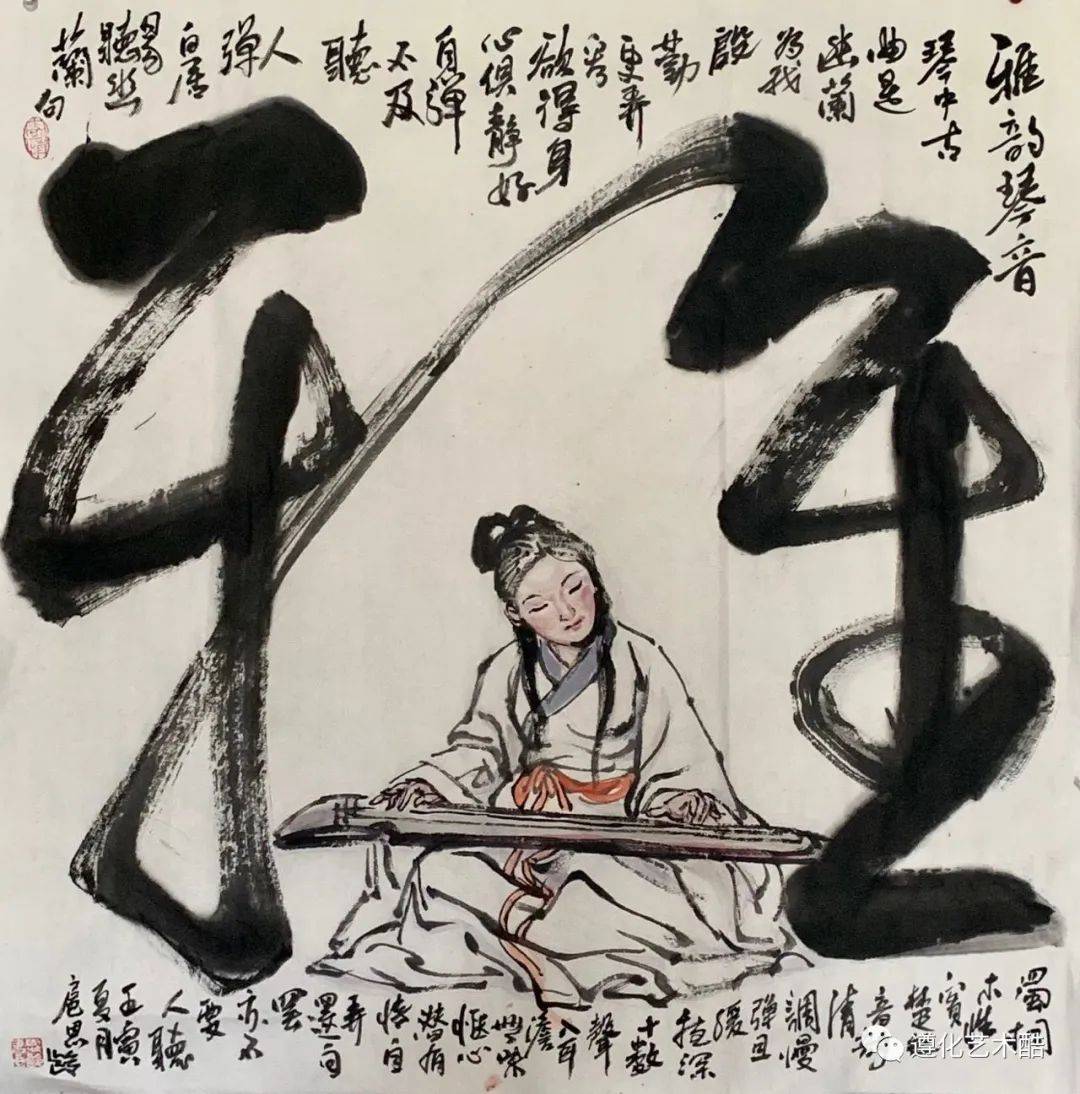 雅韵琴音
琴中古
曲是
幽蘭
为我
殷
勤
更弄
看
欲得身
心俱靜好
自弹
不及
聽
人
弹
白居
易聽幽
蘭句
蜀桐
木性
實
楚
音
清
調慢
弹且
緩
夜深
十数
聲
入耳
澹
無味
惬心
潜有
情自
弄
還自
罢
亦不
要
人聽
壬寅
夏月
扈思
遵化艺术酷